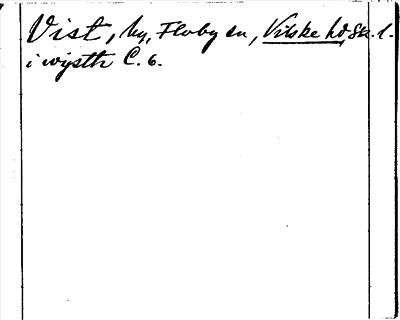 Vist, by, Floby sn, Vilske hd Sk. l.
i wijsth C. 6.